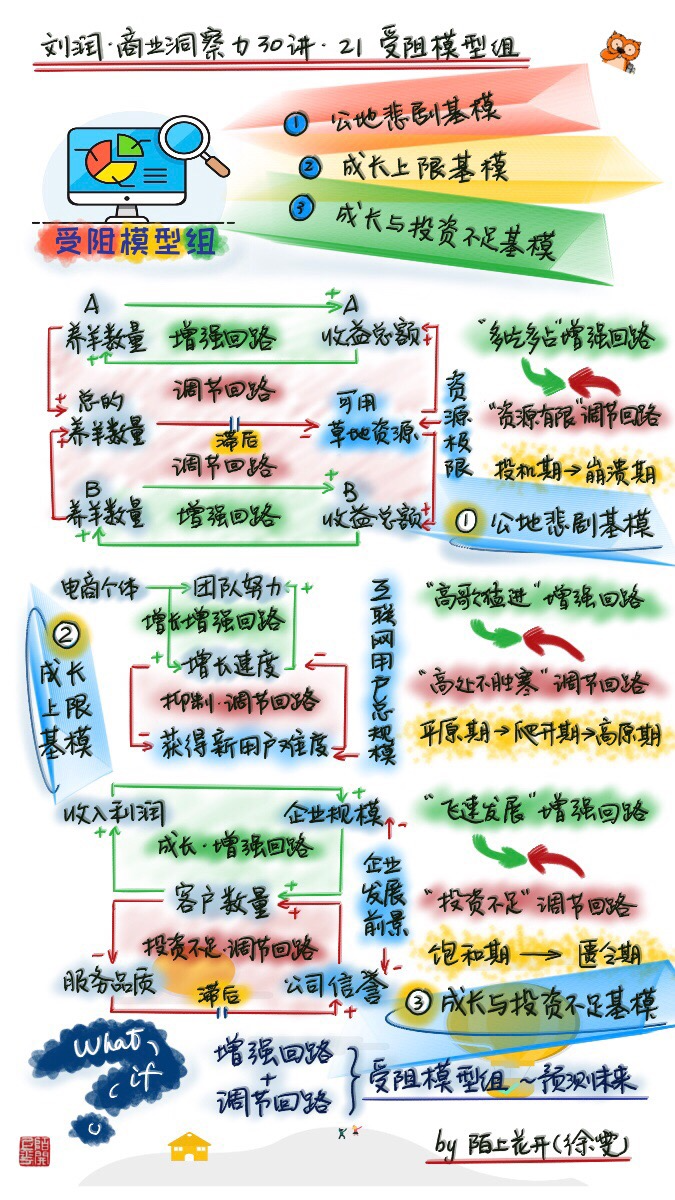 刘润·商业洞察力30讲·21 受阻模型组
① 公地悲剧基模
② 成长上限基模
③ 成长与投资不足基模
受阻模型组
A
养羊数量
增强回路
A
收益总额
调节回路
总的
养羊数量
滞后
可用
草地资源
调节回路
B
养羊数量
增强回路
B
收益总额
资源极限
"多吃多占"增强回路
"资源有限"调节回路
投机期→崩溃期
① 公地悲剧基模
②
成长
上限
基模
电商个体
团队努力
增长增强回路
增长速度
抑制·调节回路
获得新用户难度
互联网用户总规模
"高歌猛进"增强回路
"高处不胜寒"调节回路
平原期→爬升期→高原期
收入利润
企业规模
成长·增强回路
客户数量
投资不足·调节回路
服务品质
滞后
公司信誉
企业
发展
前景
"飞速发展"增强回路
"投资不足"调节回路
饱和期→匮乏期
③ 成长与投资不足基模
What
if
增强回路
+
调节回路
受阻模型组~预测未来
by 陌上花开(徐雯)